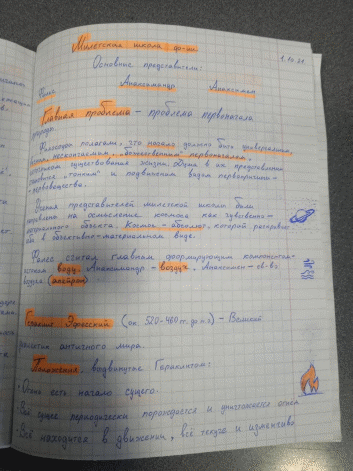 Милетская школа до-ии.
1.10.21
Основные представители:
Фалес Анаксимандр Анаксимен
Главная проблема – проблема первоначала
природы.
Философы полагали, что начало должно быть универсальным,
"вещественным" первоначалом,
существования жизни. Душа в их представлении
"тонким" и подвижным видом
первовещества.
представителей милетской школы были
на осмысление космоса как чувственно-
объекта. Космос – абсолют, который
в объективно-материальном виде.
Фалес считал главным формирующим компонентом
воду. Анаксимандр – воздух. Анаксимен –
воздуха (апейрон)
Эфесский (ок. 520-460 гг. до н.э) – Великий
античного мира.
Положения, выдвинутые Гераклитом:
· Огонь есть начало сущего.
· Всё сущее периодически порождается и уничтожается огнём
· Всё находится в движении, всё текуче и изменчиво